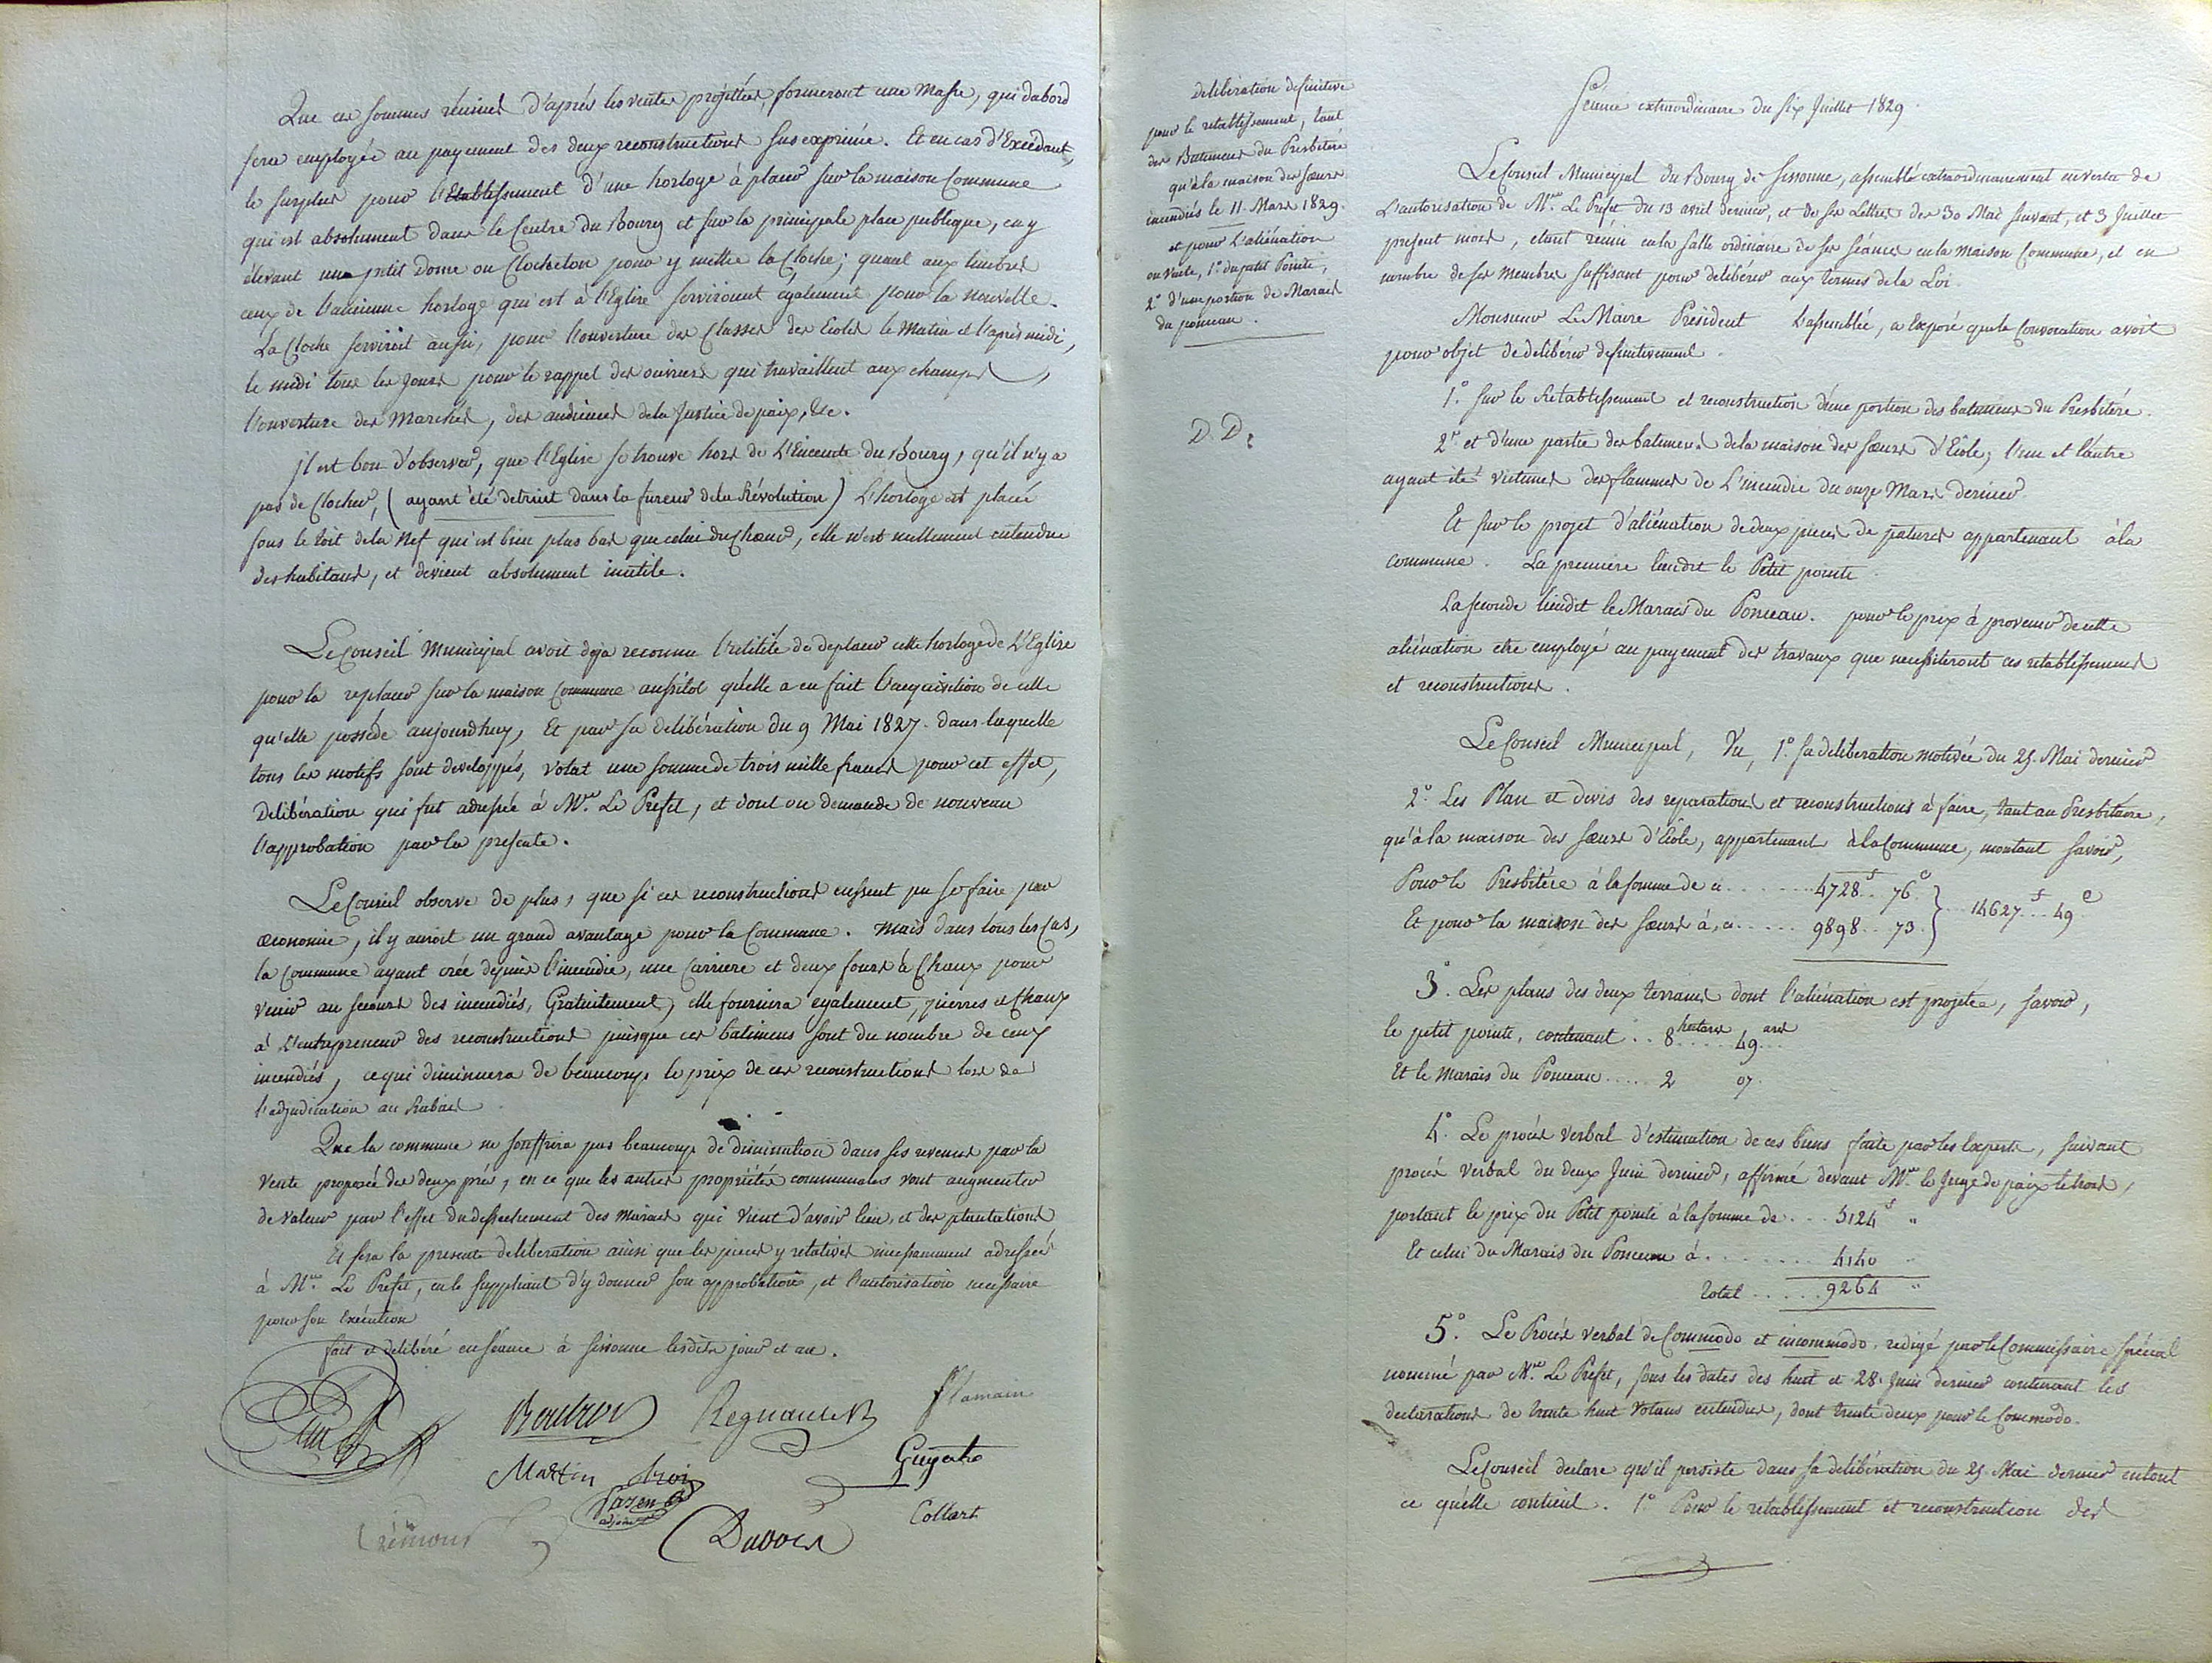 Que ces sommes réunies d'après les ventes projettées, formeront une Masse, qui dabord
sera employée au payement des deux reconstructions sus exprimée. Et en cas d'Excédant,
le surplus pour l'Etablissement d'une horloge à placer sur la maison Commune
qui est absolument dans le Centre du Bourg et sur la principale place publique, en y
élevant un petit dome ou Clocheton pour y mettre la Cloche; quant aux timbres
ceux de l'ancienne horloge qui est à l'Eglise serviroient également pour la nouvelle.
La Cloche serviroit aussi, pour l'ouverture des Classes des Ecoles le Matin et l'après midi,
le midi tous les jours pour le rappel des ouvriers qui travaillent aux champs,
l'ouverture des Marchés, des audiences de la Justice de paix, &c.
jl est bon d'observer, que l'Eglise se trouve hors de L'Enceinte du Bourg, qu'il n'y a
pas de Clocher, (ayant été detruit dans la fureur de la Révolution) L'horloge est placée
sous le toit de la Nef qui est bien plus bas que celui du Chœur, elle n'est nullement entendue
des habitans, et devient absolument inutile.
Le Conseil Municipal avoit deja reconnu l'utilité de deplacer cette horloge de L'Eglise
pour la replacer sur la maison Commune aussitot qu'elle a eu fait l'acquisition de celle
qu'elle possède aujourdhuy, Et par sa deliberation du 9 Mai 1827. dans laquelle
tous les motifs sont developpés, votat une somme de trois mille francs pour cet effet,
Deliberation qui fut adressée à Mr. Le Prefet, et dont on demande de nouveau
l'approbation par la presente.
Le Conseil observe de plus, que si ces reconstructions eussent pu se faire par
œconomie, il y auroit un grand avantage pour la Commune. Mais dans tous les Cas,
la Commune ayant créé depuis l'incendie, une Carriere et deux fours à Chaux pour
venir au secours des incendiés, Gratuitement, elle fournira egalement, pierres et Chaux
à L'entrepreneur des reconstructions puisque ces batimens sont du nombre de ceux
incendiés, ce qui diminuera de beaucoup le prix de ces reconstructions lors de
l'adjudication au Rabais.
Que la commune ne souffrira pas beaucoup de diminution dans ses revenus par la
vente proposée des deux prés, en ce que les autres propriétés communales vont augmenter
de valeur par l'effet du dessechement des Marais qui vient d'avoir lieu, et des plantations
Et sera la presente deliberation ainsi que les pieces y relatives incessamment adressées
à Mr. Le Prefet, en le suppliant d'y donner son approbation, et l'autorisation necessaire
pour son Exécution
fait et delibéré en séance à Sissonne lesdits jour et an.
Boutroy Regnault flamain
Martin Guyot
Collart
adjoint
Davoir
Délibération definitive
pour le retablissement, tant
des Batimens du Presbitere
qu'à la maison des Sœurs
incendiés le 11 Mars 1829.
et pour L'aliénation
ou Vente, 1° du petit Pointe,
2° d'une portion de Marais
du ponceau.
D. D.
Séance extraordinaire du six Juillet 1829.
Le Conseil Municipal du Bourg de Sissonne, assemblé extraordinairement en vertu de
L'autorisation de Mr. Le Préfet du 13 avril dernier, et de ses Lettres des 30 Mai suivant, et 3 Juillet
present mois, etant réuni en la salle ordinaire de ses séances en la Maison Commune, et en
nombre de ses membres suffisant pour delibérer aux termes de la Loi.
Monsieur Le Maire Président L'assemblée, a Exposé que la Convocation avoit
pour objet de délibérer definitivement.
1.° Sur le Rétablissement et reconstruction d'une portion des batimens du Presbitère.
2° et d'une partie des batimens de la maison des Sœurs d'Ecole; l'une et l'autre
ayant été victimes des flammes de L'incendie du onze Mars dernier.
Et sur le projet d'aliénation de deux pieces de patures appartenant à la
commune. La premiere lieudit le Petit pointe.
La seconde lieudit le Marais du Ponceau. pour le prix à provenir de cette
aliénation etre employé au payement des travaux que necessiteront ces retablissemens
et reconstructions.
Le Conseil Municipal, Vu, 1.° sa deliberation motivée du 25. Mai dernier
2.° Les Plan et devis des reparations et reconstructions à faire, tant au Presbitaire,
qu'à la maison des Sœurs d'Ecole, appartenant à la Commune, montant savoir,
Pour le Presbitère à la somme de ci ........ 4728 f .. 76 c
Et pour la maison des Sœurs à, ci ..... 9898 .. 73 } ... 14627 f .. 49 c
3.° Les plans des deux terrains dont l'aliénation est projetée, savoir,
le petit pointe, contenant .. 8 hectares .... 49 ares
Et le Marais du Ponceau ..... 2 07.
4.° Le procès verbal d'estimation de ces biens faite par les Experts, suivant
procès verbal du deux Juin dernier, affirmé devant Mr. le Juge de paix le trois,
portant le prix du Petit pointe à la somme de ... 5124 f "
Et celui du Marais du Ponceau à ......... 4140
Total ..... 9264 "
5.° Le Procès verbal de Commodo et incommodo, redigé par le Commissaire spécial
nommé par Mr. Le Préfet, sous les dates des huit et 28 Juin dernier contenant les
declarations de trente huit Votans entendus, dont trente deux pour le Commodo.
Le Conseil declare qu'il persiste dans sa delibération du 25. Mai dernier en tout
ce qu'elle contient. 1° Pour le retablissement et reconstruction des